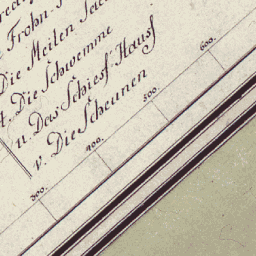 Frohn
Die Meilen
t. Die Schwemme
u. Das Schiess Hauss
v. Die Scheunen
300. 400. 500. 600.